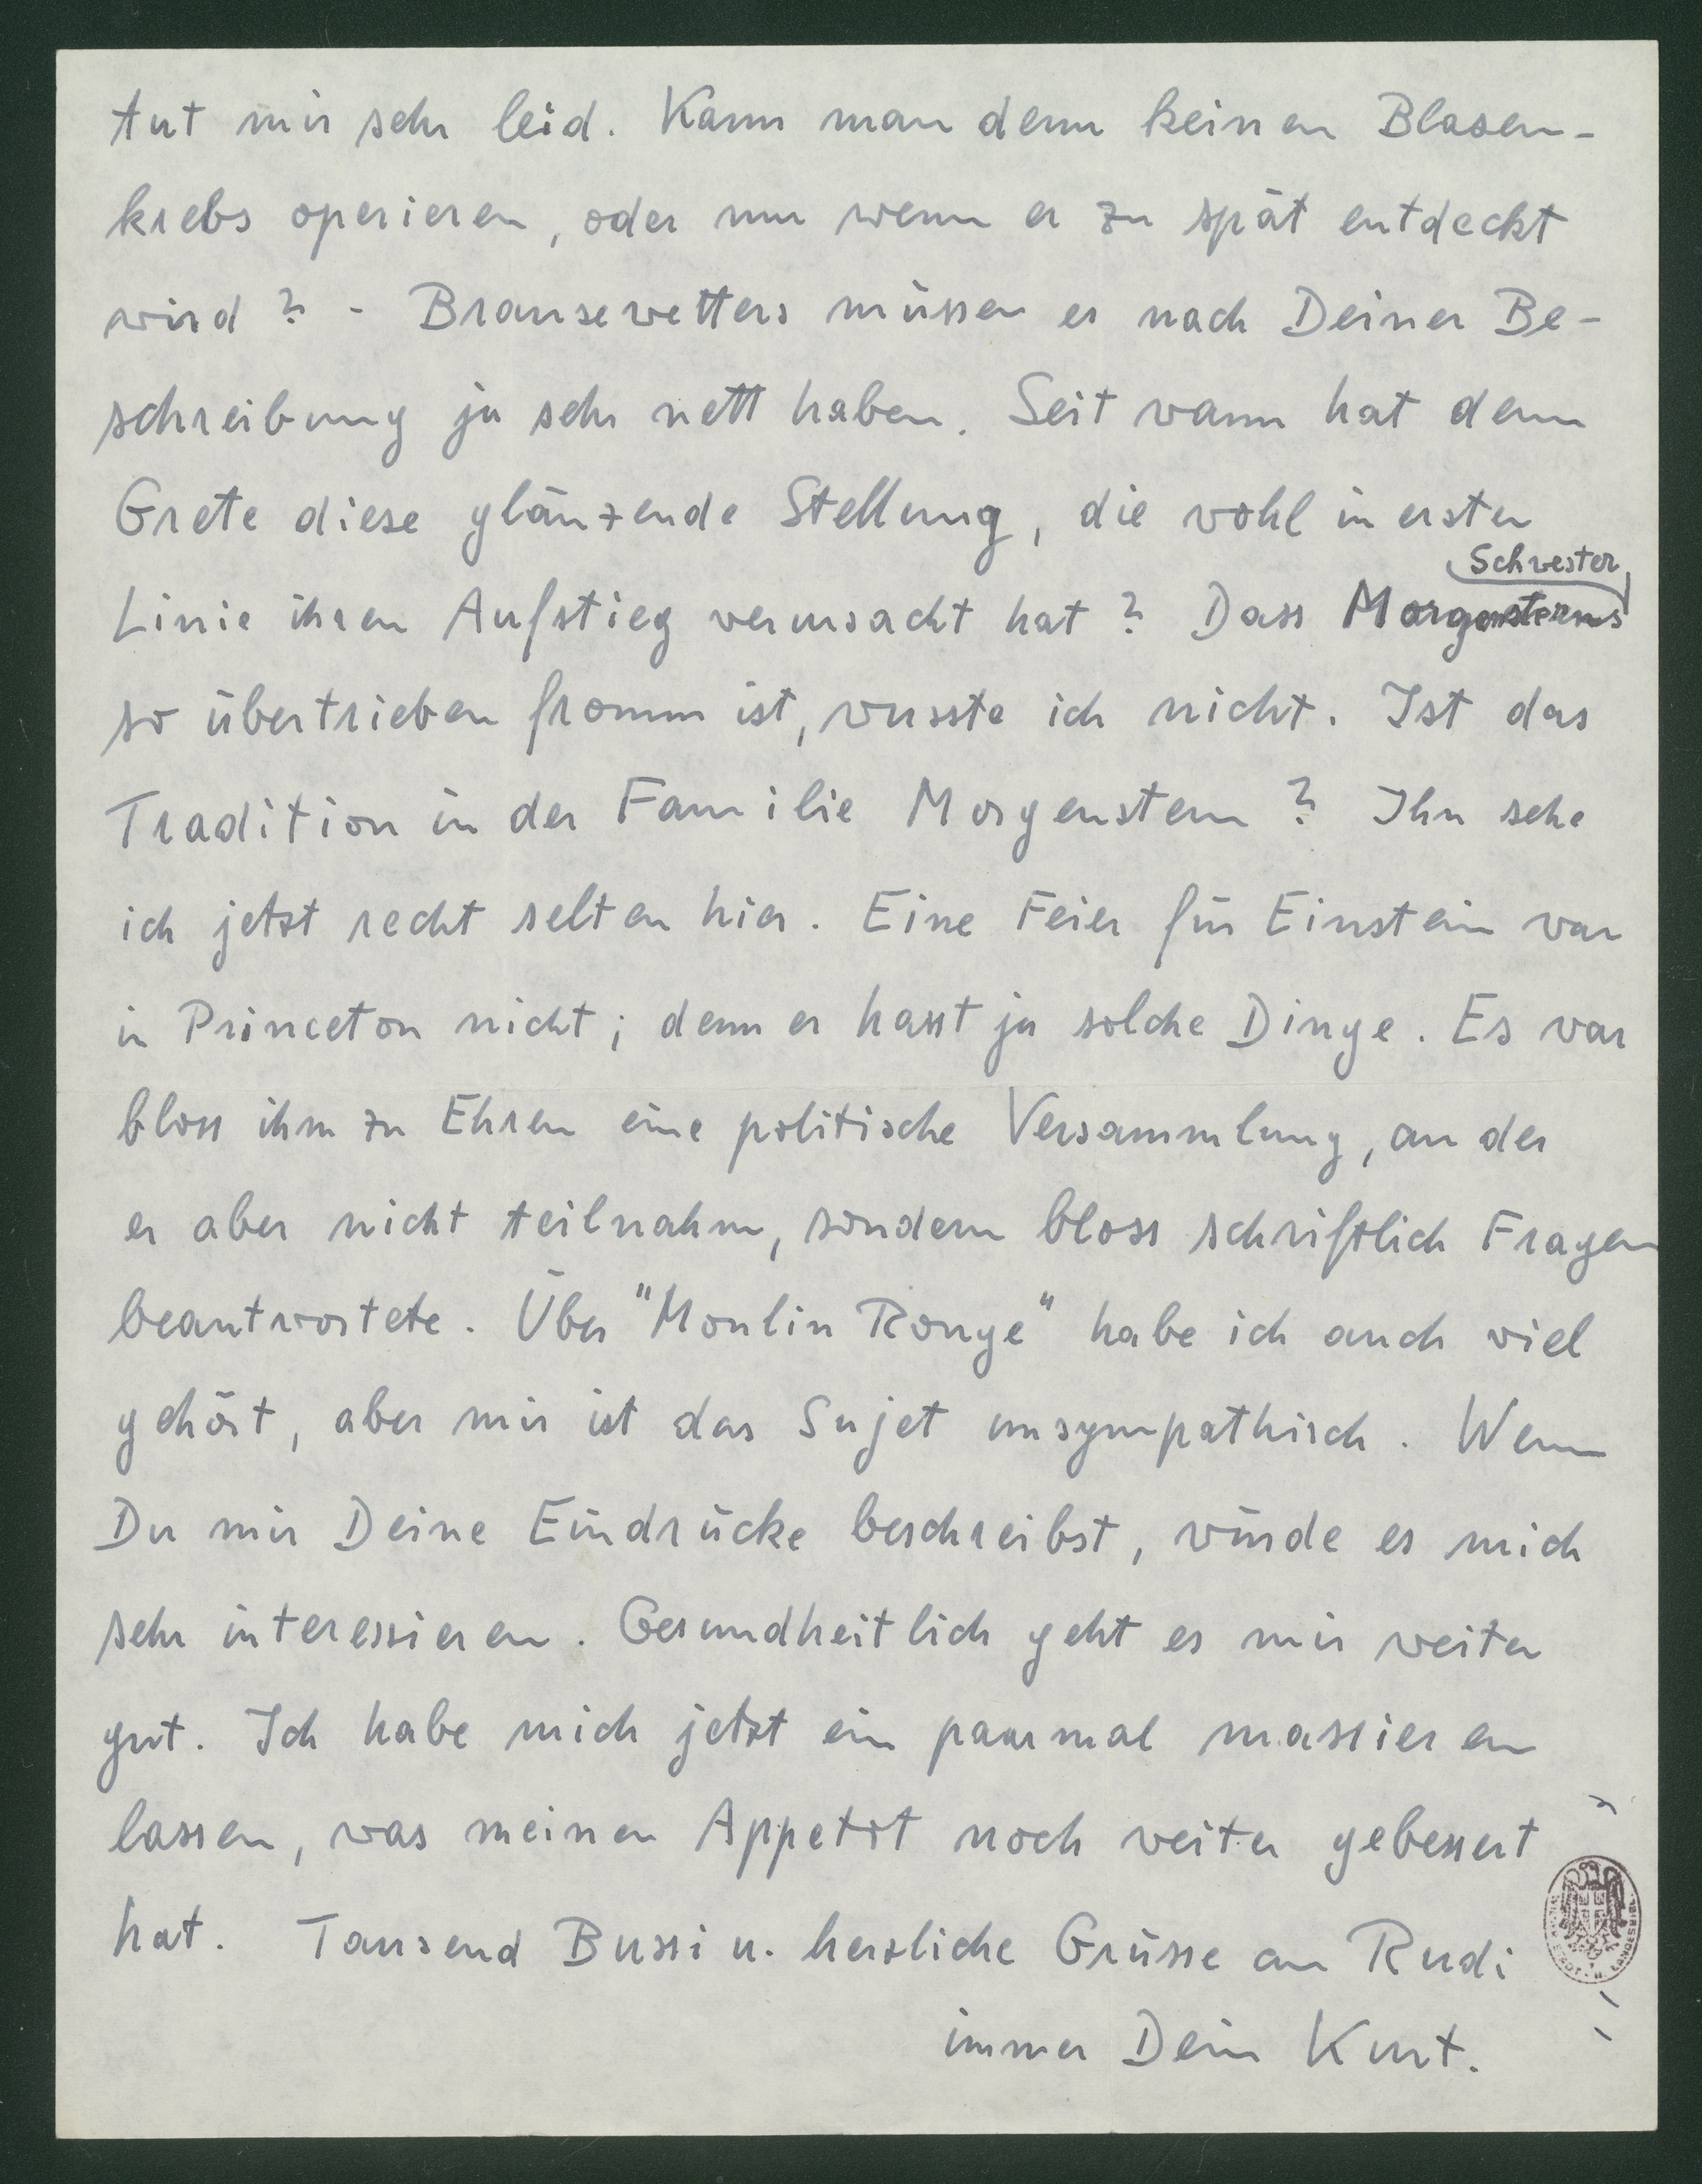 tut mir sehr leid. Kann man denn keinen Blasen-
krebs operieren, oder nur wenn er zu spät entdeckt
wird? - Brausewetters müssen es nach Deiner Be-
schreibung ja sehr nett haben. Seit wann hat denn
Grete diese glänzende Stellung, die wohl in erster
Schwester
Linie ihren Aufstieg verursacht hat? Dass Morgensterns
so übertrieben fromm ist, wusste ich nicht. Ist das
Tradition in der Familie Morgenstern? Ihn sehe
ich jetzt recht selten hier. Eine Feier für Einstein war
in Princeton nicht; denn er hasst ja solche Dinge. Es war
bloss ihm zu Ehren eine politische Versammlung, an der
er aber nicht teilnahm, sondern bloss schriftlich Fragen
beantwortete. Über "Moulin Rouge" habe ich auch viel
gehört, aber mir ist das Sujet unsympathisch. Wenn
Du mir Deine Eindrücke beschreibst, würde es mich
sehr interessieren. Gesundheitlich geht es mir weiter
gut. Ich habe mich jetzt ein paarmal massieren
lassen, was meinen Appetit noch weiter gebessert
hat. Tausend Bussi u. herzliche Grüsse an Rudi
immer Dein Kurt.